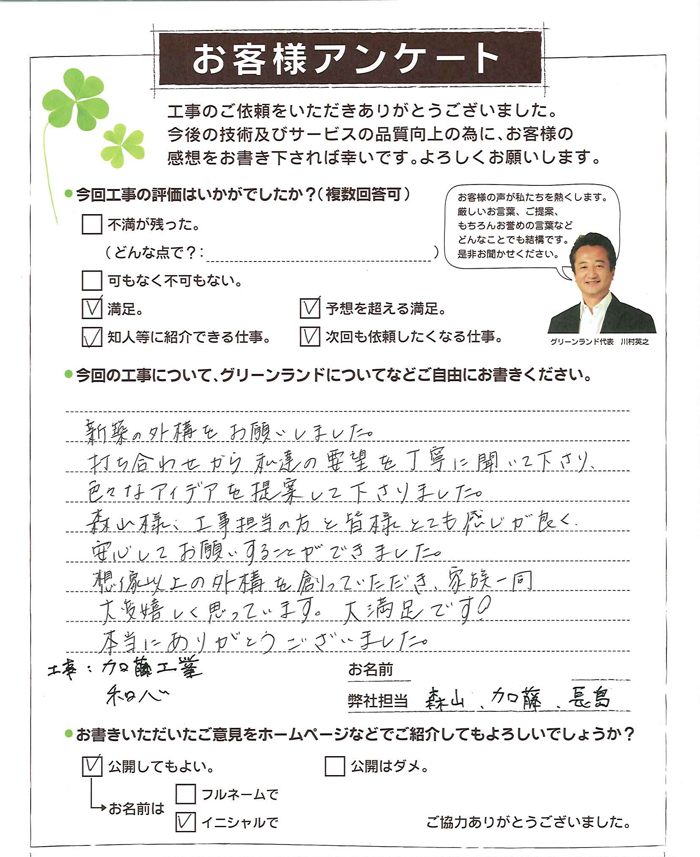 お客様アンケート
工事のご依頼をいただきありがとうございました。
今後の技術及びサービスの品質向上の為に、お客様の
感想をお書き下されば幸いです。よろしくお願いします。
●今回工事の評価はいかがでしたか？（複数回答可）
不満が残った。
（どんな点で？：　）
可もなく不可もない。
満足。
予想を超える満足。
知人等に紹介できる仕事。
次回も依頼したくなる仕事。
お客様の声が私たちを熱くします。
厳しいお言葉、ご提案、
もちろんお誉めの言葉など
どんなことでも結構です。
是非お聞かせください。
グリーンランド代表　川村英之
●今回の工事について、グリーンランドについてなどご自由にお書きください。
新築の外構をお願いしました。
打ち合わせから私達の要望を丁寧に聞いて下さり、
色々なアイデアを提案して下さりました。
森山様、工事担当の方と皆様とても感じが良く、
安心してお願いすることができました。
想像以上の外構を創っていただき、家族一同
大変嬉しく思っています。大満足です!
本当にありがとうございました。
工事：加藤工業
和心
お名前
弊社担当　森山、加藤、長島
●お書きいただいたご意見をホームページなどでご紹介してもよろしいでしょうか？
公開してもよい。
公開はダメ。
お名前は
フルネームで
イニシャルで
ご協力ありがとうございました。